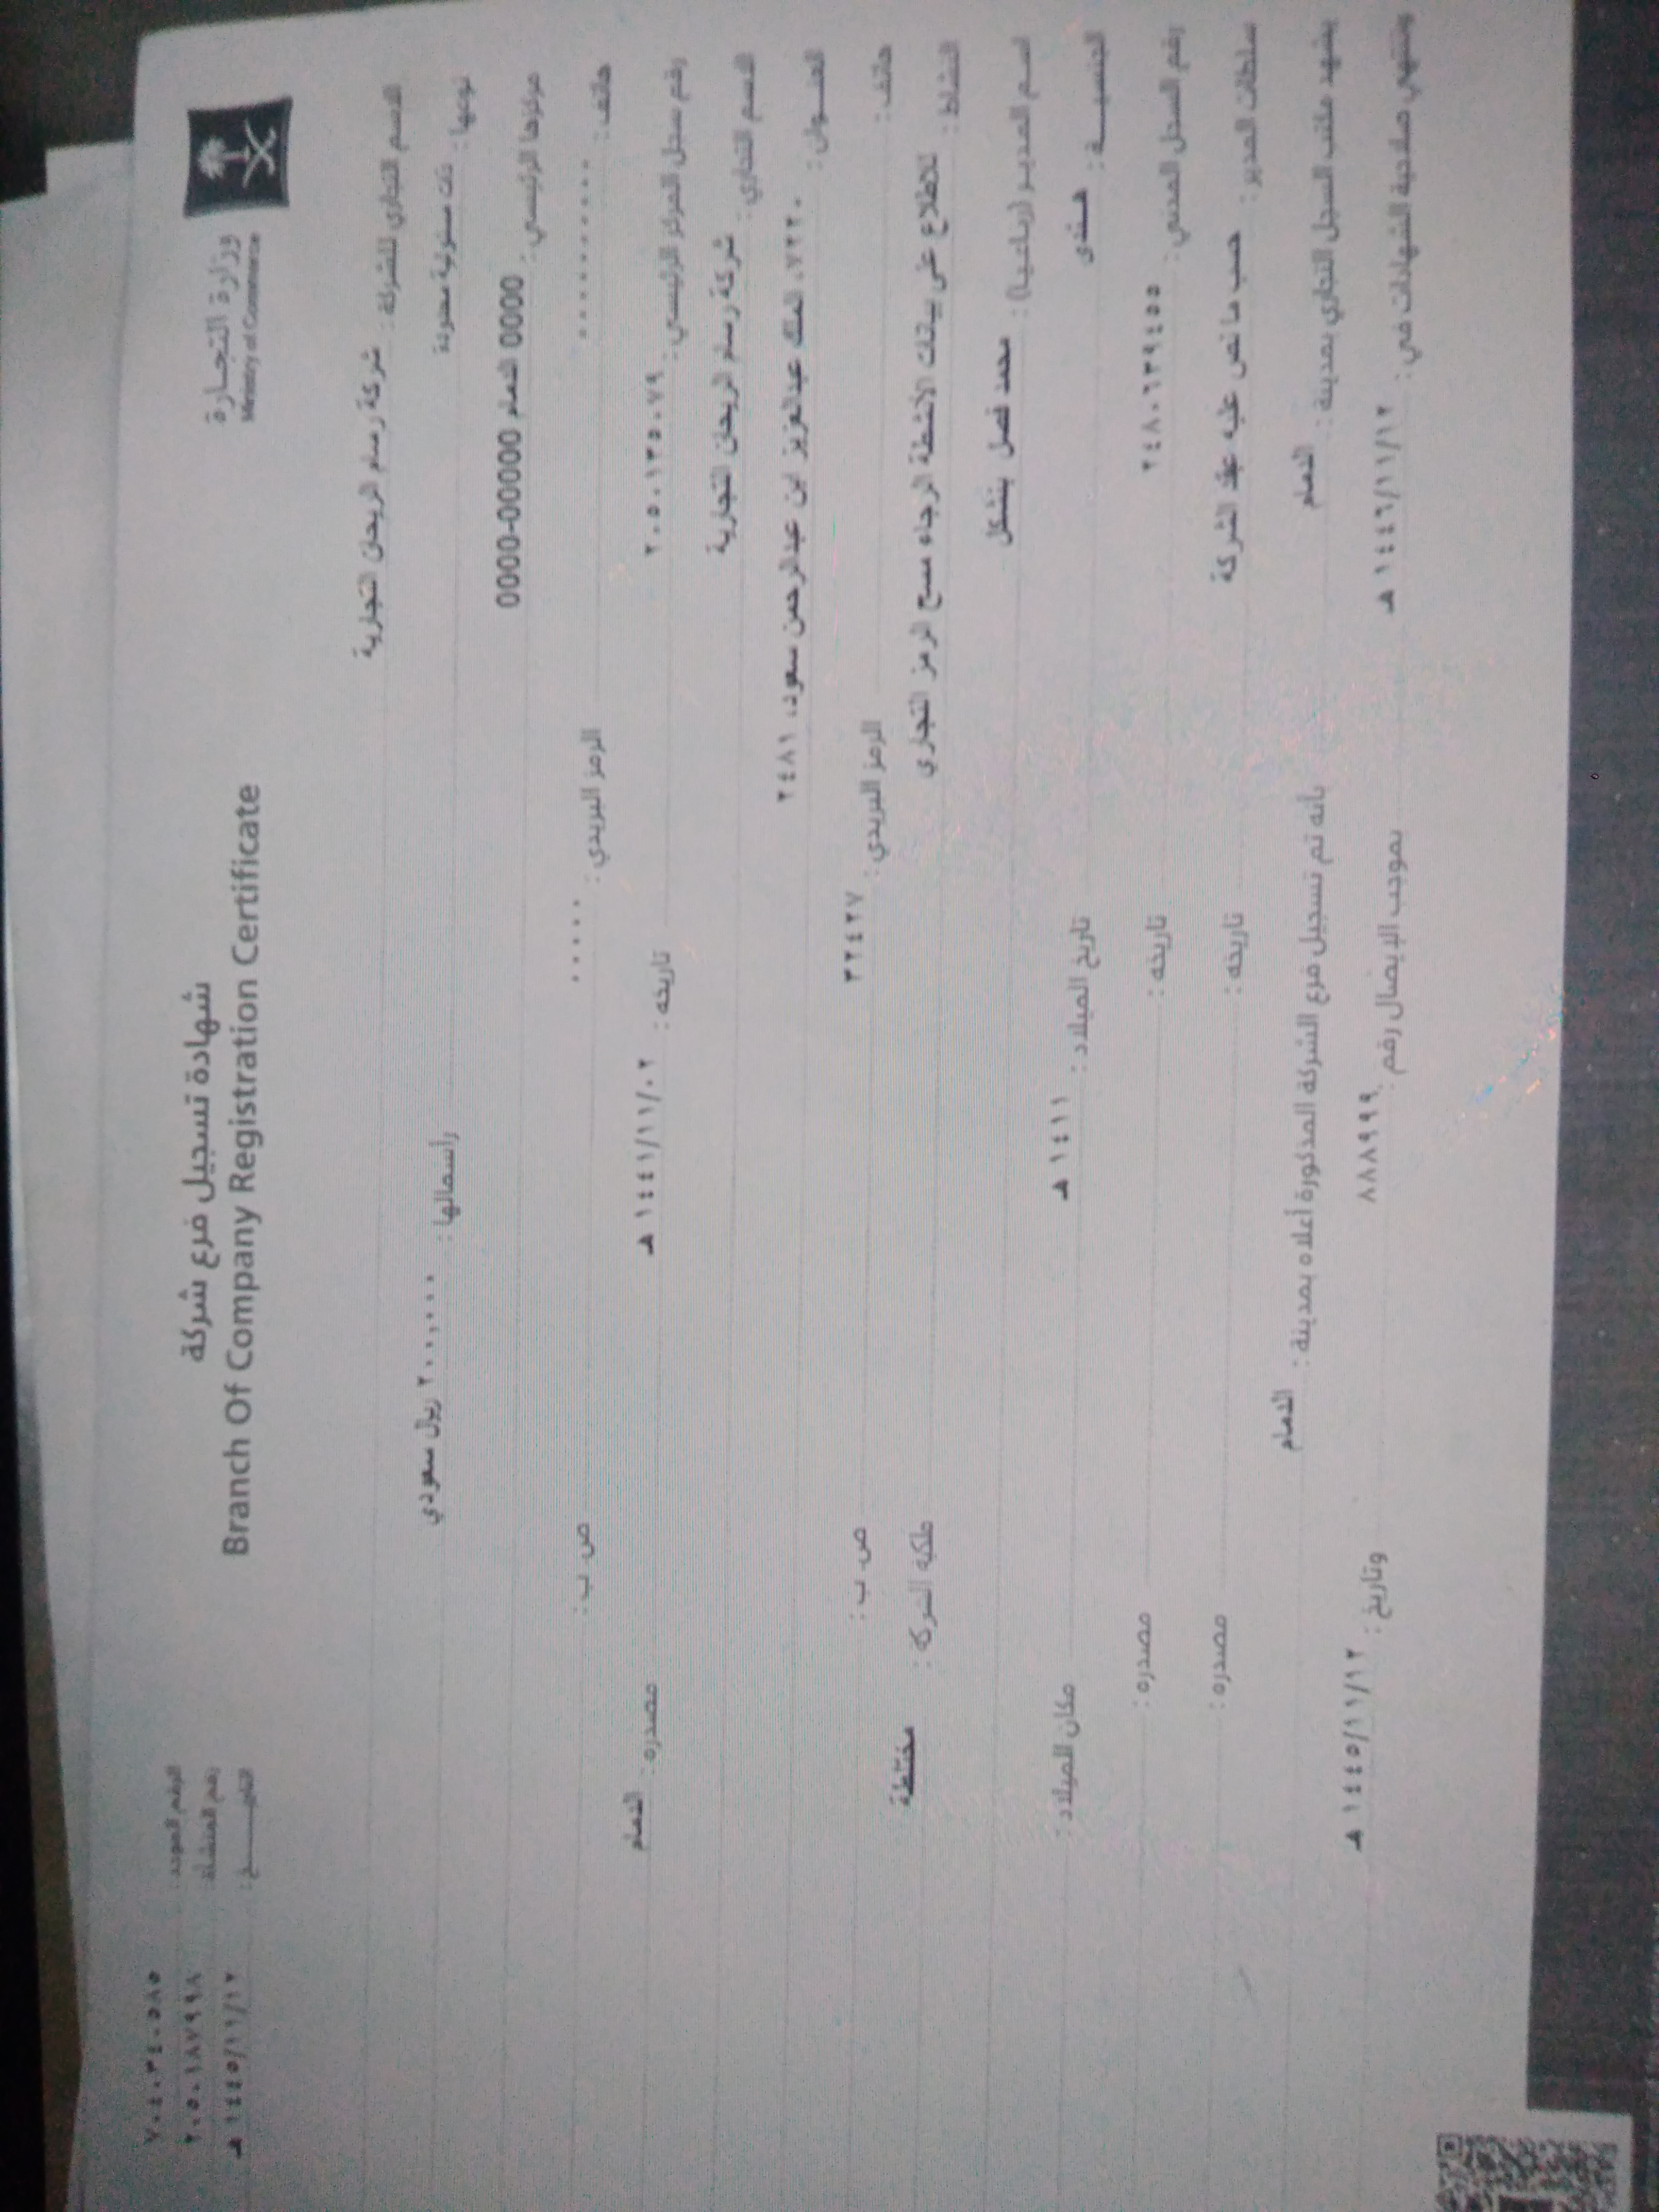 وزارة التجارة
Ministry of Commerce
شهادة تسجيل فرع شركة
Branch Of Company Registration Certificate
الرقم الموحد : ٧٠٤٠٣٤٠٥٨٥
رقم المنشأة : ٢٠٥٠١٨٧٩٩٨
التاريـــــخ : ١٤٤٥/١١/١٢ هـ
الاسم التجاري للشركة : شركة رسام الريحان التجارية
نوعها : ذات مسئولية محدودة رأسمالها : ٢٠٠,٠٠٠ ريال سعودي
مركزها الرئيسي : 0000 الدمام 00000-0000
هاتف : ٠٠٠٠٠٠٠٠٠٠ الرمز البريدي : ٠٠٠٠٠ ص. ب :
رقم سجل المركز الرئيسي : ٢٠٥٠١٣٥٠٧٩ تاريخه : ١٤٤١/١١/٠٢ هـ مصدره : الدمام
الاسم التجاري : شركة رسام الريحان التجارية
العنـــوان : ٧٢٢٠، الملك عبدالعزيز ابن عبدالرحمن سعود، ٢٤٨١
هاتف : الرمز البريدي : ٣٢٤٢٧ ص. ب :
النشاط : للاطلاع على بيانات الأنشطة الرجاء مسح الرمز التجاري ملكية الشركة : مختلطة
اسـم المديـر (رباعيـا) : محمد فصل
الجنسيـــــة : هـنـدى تاريخ الميلاد : ١٤١١ هـ مكان الميلاد :
رقم السجل المدني : ٢٤٨٠٦٣٩٤٥٥ تاريخه : مصدره :
سلطات المدير : حسب ما نص عليه عقد الشركة تاريخه : مصدره :
يشهد مكتب السجل التجاري بمدينة : الدمام بأنه تم تسجيل فرع الشركة المذكورة أعلاه بمدينة : الدمام
وتنتهي صلاحية الشهادات في : ١٤٤٦/١١/١٢ هـ بموجب الإيصال رقم : ٨٨٨٩٩٩ وتاريخ : ١٤٤٥/١١/١٢ هـ